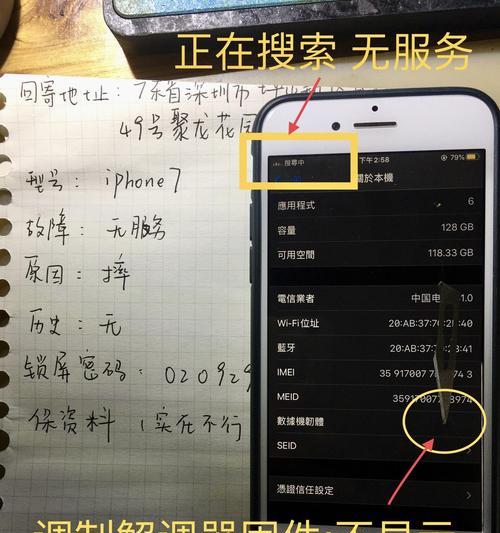 正在搜索 无服务
回寄地址：广东省深圳市
49号聚龙花园
型号：iphone7
故障：无服务
原因：摔
历史：无
锁屏密码：020929
保资料（实在不行
搜尋中
下午2:58
79%
關於本機
應用程式 6
容量 128 GB
可用空間 118.33 GB
電信業者 中国电 1.0
Wi-Fi位址 20:AB:37:7 :40
藍牙 20:AB:37: :41
IMEI 35 917007 3
MEID 35917007 8974
數據機韌體
SEID
憑證信任設定
调制解调器固件:不显示